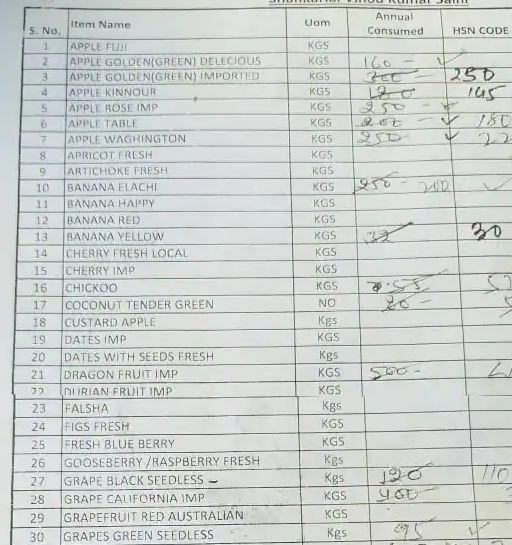 Shonkariar Vinod Kumar Saini
S. No. Item Name Uom Annual Consumed HSN CODE
1 APPLE FUJI KGS
2 APPLE GOLDEN(GREEN) DELECIOUS KGS 160 - ✓
3 APPLE GOLDEN(GREEN) IMPORTED KGS 300 250
4 APPLE KINNOUR KGS 180 145
5 APPLE ROSE IMP KGS 250 - ✓
6 APPLE TABLE KGS 200 - ✓ 180
7 APPLE WAGHINGTON KGS 250 ✓ 22
8 APRICOT FRESH KGS
9 ARTICHOKE FRESH KGS
10 BANANA ELACHI KGS 250 - 200 ✓
11 BANANA HAPPY KGS
12 BANANA RED KGS
13 BANANA YELLOW KGS 32 30
14 CHERRY FRESH LOCAL KGS
15 CHERRY IMP KGS
16 CHICKOO KGS
17 COCONUT TENDER GREEN NO 80 -
18 CUSTARD APPLE Kgs
19 DATES IMP KGS
20 DATES WITH SEEDS FRESH Kgs
21 DRAGON FRUIT IMP KGS 500 -
22 DURIAN FRUIT IMP KGS
23 FALSHA Kgs
24 FIGS FRESH KGS
25 FRESH BLUE BERRY KGS
26 GOOSEBERRY /RASPBERRY FRESH Kgs
27 GRAPE BLACK SEEDLESS Kgs 120 110
28 GRAPE CALIFORNIA IMP KGS 400
29 GRAPEFRUIT RED AUSTRALIAN KGS
30 GRAPES GREEN SEEDLESS Kgs 95 ✓